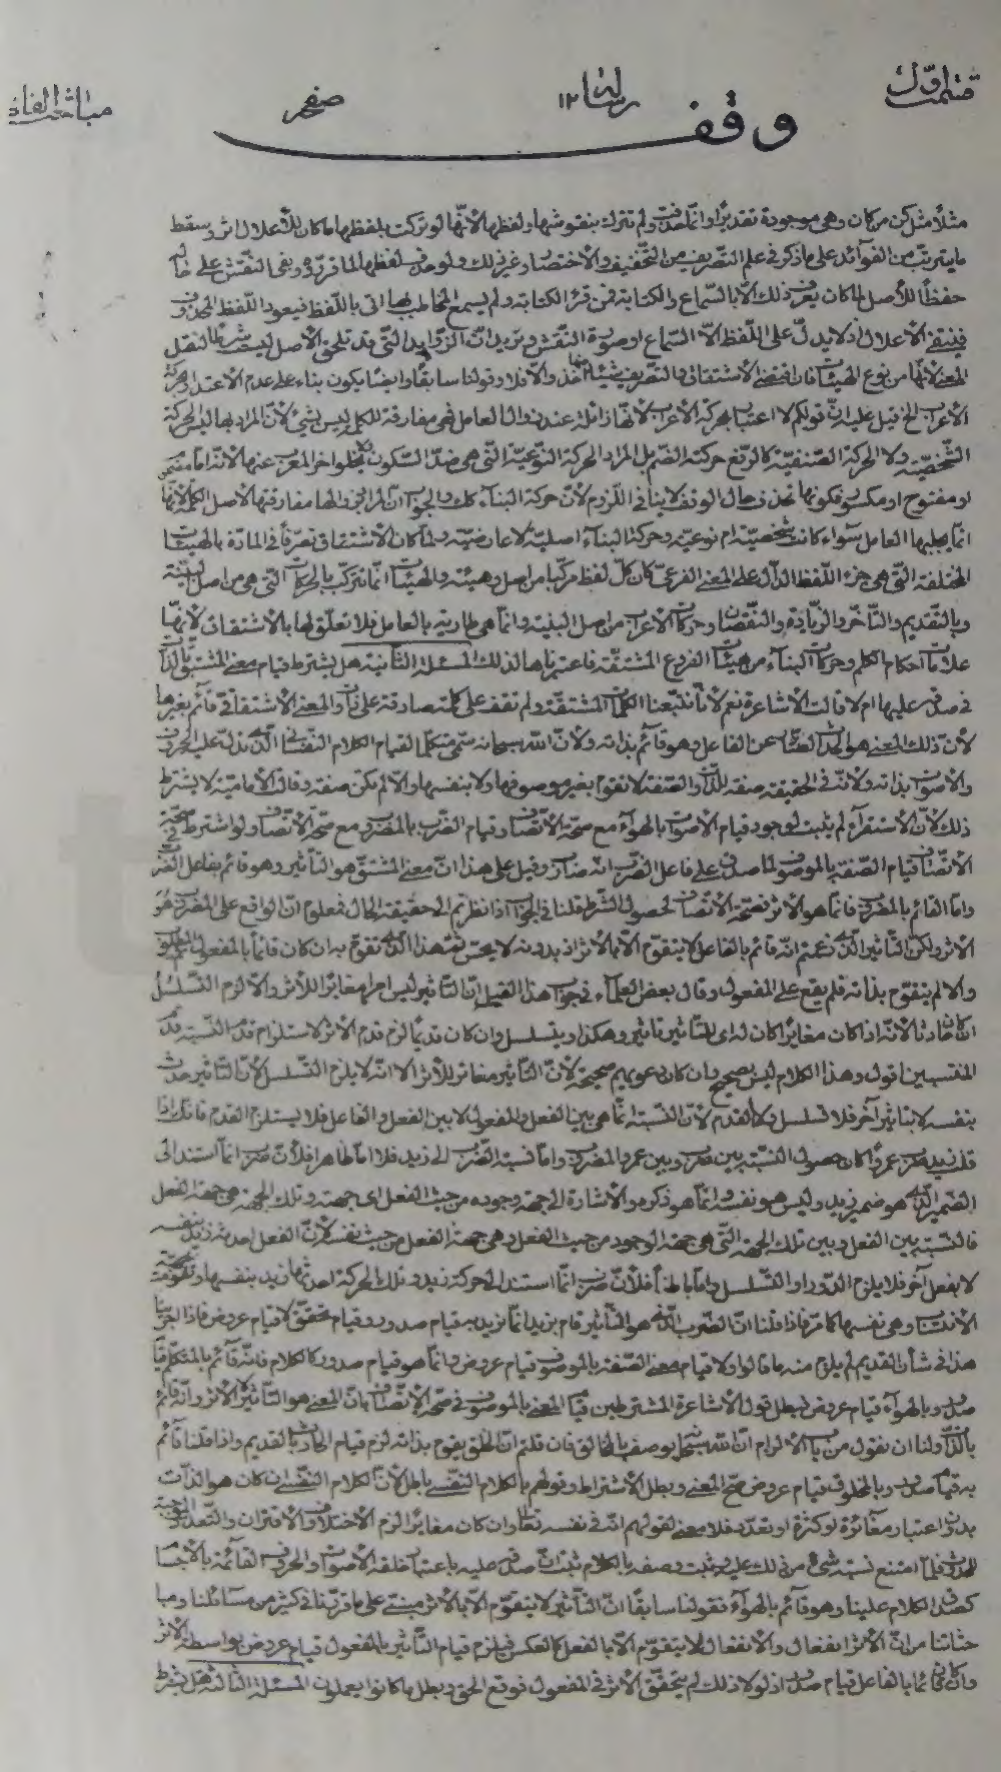 قسمت اول
رسالة ١٢
صفحه
مباحث الفاظ
وقف
مثلاً مثل كن من كان وهي موجودة تقديراً وانما حذفت ولم تترك بنقوشها ولفظها لأنها لو تركت بلفظها ما كان للأعلال اثر وسقط
ما يترتب من الفوائد على ما ذكر في علم التصريف من التخفيف والأختصار وغير ذلك ولو حذف لفظها لما قرره وبقي النقش على حاله
حفظاً للأصل لما كان يعرف ذلك الا بالسماع والكتابة فمن قرء الكتابة ولم يسمع المخاطب بها اتى باللفظ فيعود اللفظ المحذوف
فينتفي الأعلال اذ لا يدل على اللفظ الا السماع او صورة النقش ونريد ان الزوايد التي قد تلحق الأصل ليست شرطا لنقل
المعنى لأنها من نوع الهيئات فان اقتضى الأشتقاق والتصريف شيئا منها اخذ والا فلا وقولنا سابقا وايضا يكون بناء على عدم الأعتداد بحركة
الأعراب الخ قيل عليه ان قولكم لا اعتبار بحركة الأعراب لأنها زائلة عند زوال العامل فهي مفارقة للكلم ليس بشيء لأن المراد بها ليس الحركة
الشخصية ولا الحركة الصنفية كالرفع حركة الضم بل المراد الحركة النوعية التي هي ضد السكون فلا يخلوا اخر المعرب عنها لأنه اما مضموم
او مفتوح او مكسور فكونها تحذف حال الوقف لا ينافي اللزوم لأن حركة البناء كك والجواب ان المراد بزوالها مفارقتها لأصل الكلمة لأنها
انما يجلبها العامل سواء كانت شخصية ام نوعية وحركة البناء اصلية لا عارضية ولما كان الأشتقاق تصرفاً في المادة بالهيئات
المختلفة التي هي جزء اللفظ الدال على المعنى الفرعي كان كل لفظ مركبا من اصل وهيئة والهيئات انما تتركب بالحركات التي هي من اصل البنية
وبالتقديم والتأخر والزيادة والنقصان وحركات الأعراب من اصل البنية وانما هي طارية بالعامل فلا تعلق لها بالأشتقاق لأنها
علامات احكام الكلم وحركات البناء من هيئات الفروع المشتقة فاعتبرناها لذلك المسئلة الثانية هل يشترط قيام معنى المشتق بالذات
في صدقه عليها ام لا قالت الأشاعرة نعم لأنا تتبعنا الكلمات المشتقة ولم نقف على كلمة صادقة على ذات والمعنى الأشتقاقي قائم بغيرها
لأن ذلك المعنى هو الحدث الصادر عن الفاعل وهو قائم بذاته ولأن الله سبحانه سمي متكلما لقيام الكلام النفساني الذي تدل عليه الحروف
والأصوات بذاته ولأنه في الحقيقة صفة للذات والصفة لا تقوم بغير موصوفها ولا بنفسها والا لم تكن صفة وقالت الأمامية لا يشترط
ذلك لأن الأستقراء لم يثبت لوجود قيام الأصوات بالهواء مع صحة الأتصاف وقيام الضرب بالمضروب مع صحة الأتصاف ولو اشترط في صحة
الأتصاف قيام الصفة بالموصوف لما صدق على فاعل الضرب انه ضارب وقيل على هذا ان معنى المشتق هو التأثير وهو قائم بفاعل الضرب
واما القائم بالمضروب فانما هو الأثر فصحة الأتصاف لحصول الشرط قلنا في الجواب اذا نظرتم الى حقيقة الحال فمعلوم ان الواقع على المضروب هو
الأثر ولكن التأثير الذي زعمتم انه قائم بالفاعل لا يتقوم الا بالأثر اذ بدونه لا يحس بشيء هذا الذي تقوم به ان كان قائماً بالمفعول
والا لم يتقوم بذاته فلم يقع على المفعول وقال بعض العلماء في جواب هذا القيل ان التأثير ليس امرا مغائرا للأثر والا لزم التسلسل
ان كان حادثا لأنه اذا كان مغائرا كان له اي للتأثير تأثير وهكذا ويتسلسل وان كان قديما لزم قدم الأثر لاستلزام قدم النسبة قدم
المنتسبين اقول وهذا الكلام ليس بصحيح وان كان دعويهم صحيحة لأن التأثير مغائر للأثر الا انه لا يلزم التسلسل لأن التأثير حدث
بنفسه لا بتأثير آخر فلا تسلسل ولا قدم لأن النسبة انما هي بين الفعل والمفعول لا بين الفعل والفاعل فلا يستلزم القدم فانك اذا
قلت زيد ضرب عمرواً كان حصول النسبة بين ضرب وبين عمرو المضروب واما نسبة الضرب الى زيد فلا اما ظاهراً فلأن ضرب انما استند الى
الضمير الذي هو ضمير زيد وليس هو نفسه وانما هو ذكره والأشارة الى جهة وجوده من حيث الفعل اى جهته وتلك الجهة هي جهة الفعل
فالنسبة بين الفعل وبين تلك الجهة التي هي جهة الوجود من حيث الفعل وهي جهة الفعل من حيث نفسه لأن الفعل احدثه زيد بنفسه
لا بفعل آخر فلا يلزم الدور او التسلسل واما باطناً فلأن ضرب انما استند الى حركة زيد وتلك الحركة احدثها زيد بنفسها وتقومت
الأنتساب وهي نفسها كما مر فاذا قلنا ان الضرب الذي هو التأثير قام بزيد انما نريد به قيام صدور وقيام تحقق لا قيام عروض فاذا اجرينا
هذا في شأن القديم لم يلزم منه ما قالوا ولا قيام معنى الصفة بالموصوف قيام عروض وانما هو قيام صدور كالكلام فانه قائم بالمتكلم قيام
صدور وبالهواء قيام عروض فبطل قول الأشاعرة المشترطين قيام المعنى بالموصوف في صحة الأتصاف بان المعنى هو التأثير لا الأثر وانه قائم
بالذات ولنا ان نقول من باب الألزام ان الله سبحانه يوصف بالخالق فان قلتم ان الخلق يقوم بذاته لزم قيام الحادث بالقديم واذا قلنا قائم
به قيام صدور وبالمخلوق قيام عروض صح المعنى وبطل الأشتراط وقولهم بالكلام النفسي باطل لأن الكلام النفسي ان كان هو الذات
بدون اعتبار مغائرة لو كثرة او تعدد فلا معنى لقولهم انه في نفسه تعالى وان كان مغائرا لزم الأختلاف والأقتران والتعدد الموجبة
للحدوث فلما امتنع نسبة شيء من ذلك عليه وثبت وصفه بالكلام ثبت ان صدقه عليه باعتبار خلقه الأصوات والحروف القائمة بالأجسام
كصدق الكلام علينا وهو قائم بالهواء فقولنا سابقا ان التأثير لا يتقوم الا بالأثر مبني على ما قررنا في كثير من مسائلنا ومباحثاتنا
من ان الأثر انفعال والأنفعال لا يتقوم الا بالفعل كالعكس فيلزم قيام التأثير بالمفعول قيام عروض بواسطة الأثر
وان كان قائما بالفاعل قيام صدور اذ لولا ذلك لم يتحقق الأثر في المفعول فوقع الحق وبطل ما كانوا يعملون المسئلة الثالثة هل يشترط